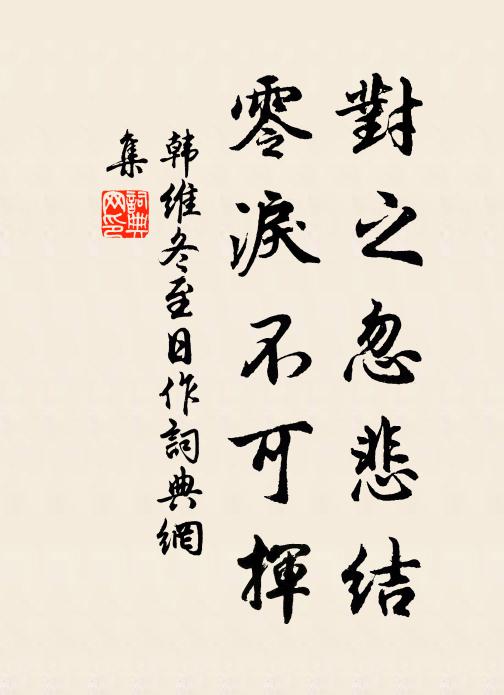 對之忽悲結
零淚不可揮
韩维冬至日作詞典網
集
詞典网印